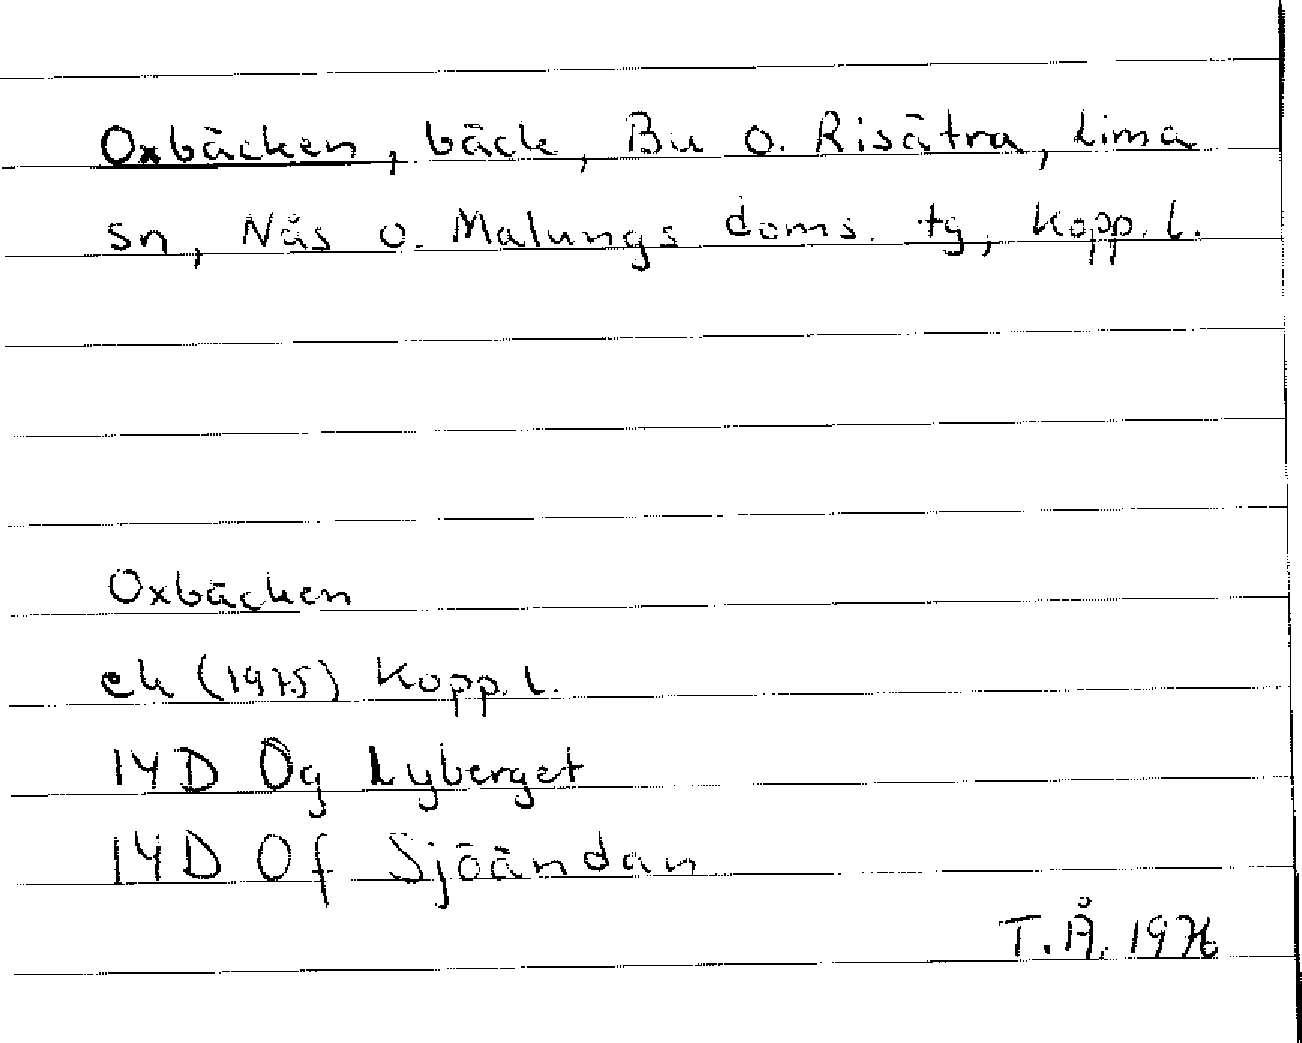 Oxbäcken, bäck, Bu o. Risätra, Lima
sn, Nås o. Malungs doms. tg, Kopp. l.
Oxbäcken
ek (1975) Kopp. l.
14D 0g Lyberget
14D 0f Sjöändan
T.Å. 1976